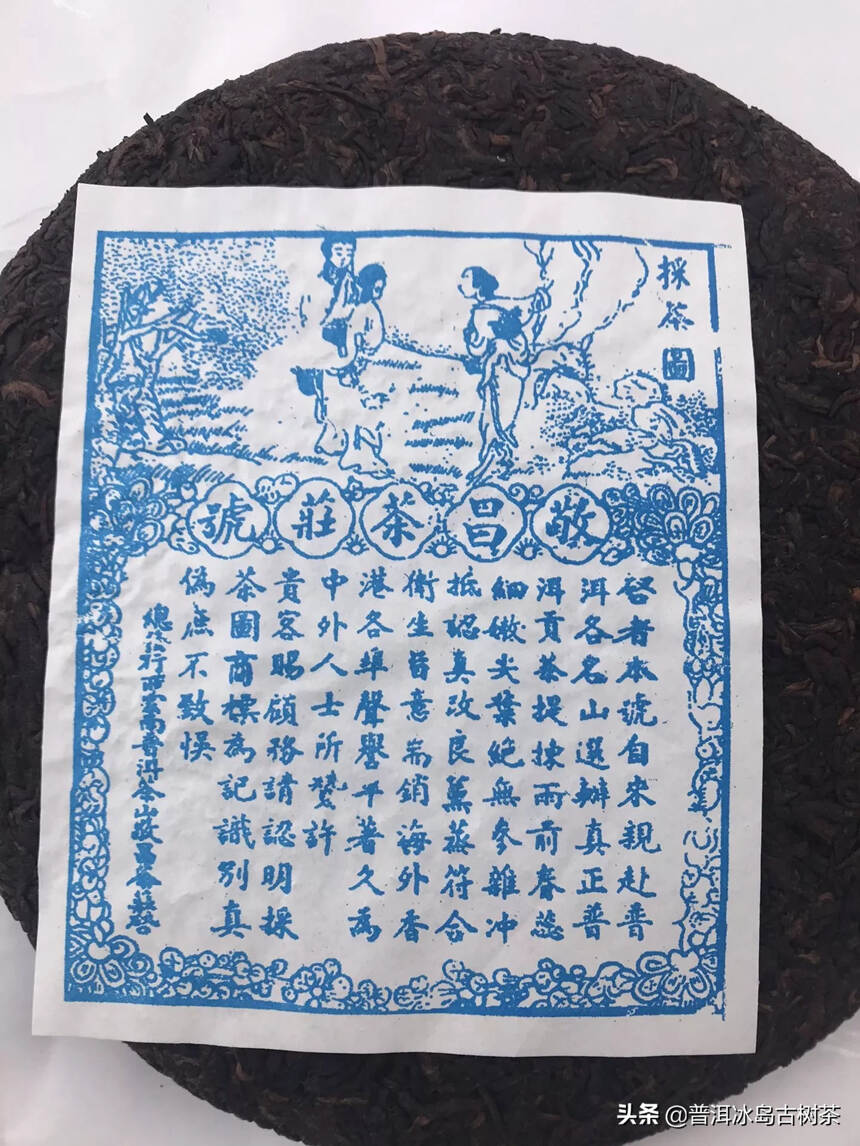 採茶圖
敬昌茶莊號
啓者本號自來親赴普
洱各名山選辦真正普
洱貢茶提揀雨前春蕊
細嫩尖葉絕無參雜冲
抵認真改良薰蒸符合
衛生旨意耑銷海外香
港各埠聲譽平著久為
中外人士所贊許
貴客賜顧務請認明採
茶圖商標為記識別真
偽庶不致悞
總發行所雲南普洱茶山敬昌茶莊啓
头条 @普洱冰岛古树茶